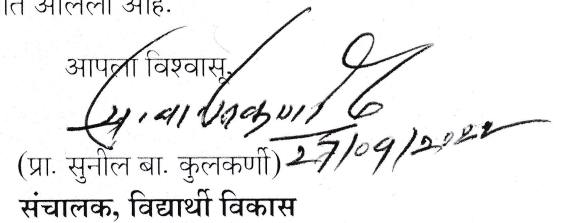 ति आलेला आहे.
आपला विश्वासू,
27/09/2022
(प्रा. सुनील बा. कुलकर्णी)
संचालक, विद्यार्थी विकास